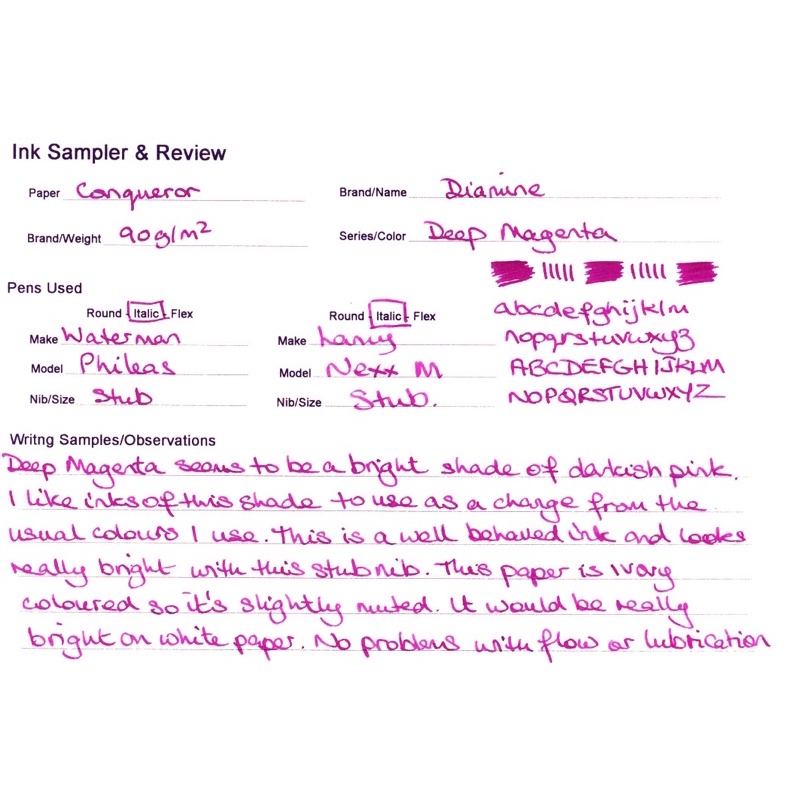 Ink Sampler & Review
Paper Conqueror Brand/Name Diamine
Brand/Weight 90g/m² Series/Color Deep Magenta
Pens Used
Round - Italic - Flex Round - Italic - Flex abcdefghijklm
Make Waterman Make Lamy nopqrstuvwxyz
Model Phileas Model Nexx M ABCDEFGHIJKLM
Nib/Size Stub Nib/Size Stub. NOPQRSTUVWXYZ
Writng Samples/Observations
Deep Magenta seems to be a bright shade of darkish pink.
I like inks of this shade to use as a change from the
usual colours I use. This is a well behaved ink and looks
really bright with this stub nib. This paper is ivory
coloured so it's slightly muted. It would be really
bright on white paper. No problems with flow or lubrication